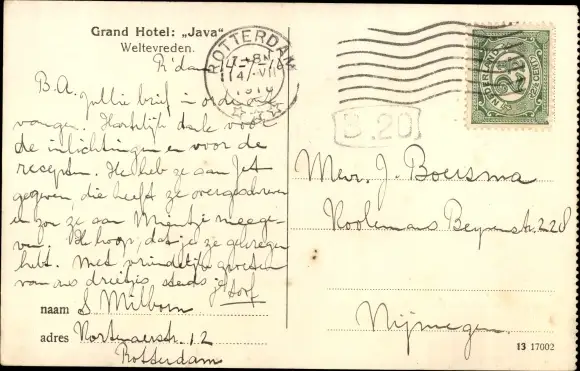 Grand Hotel: „Java"
Weltevreden.
R'dam 4-7-'16
B.A.
jullie brief in orde ont-
vangen. Hartelijk dank voor
de inlichtingen en voor de
recepten. Ik heb ze aan Jet
gegeven die heeft ze overgeschreven
en zou ze aan Mientje meege-
ven. Ik hoop, dat je ze gekregen
hebt. Met vriendelijke groeten
van ons drietjes, steeds je
naam S Milborn
adres Nortnaerstr. 12
Rotterdam
ROTTERDAM
4 VII
1916
B.20
NEDERLAND
Mevr. J. Boersma
Koolemans Beynenstr. 228
Nijmegen.
13 17002